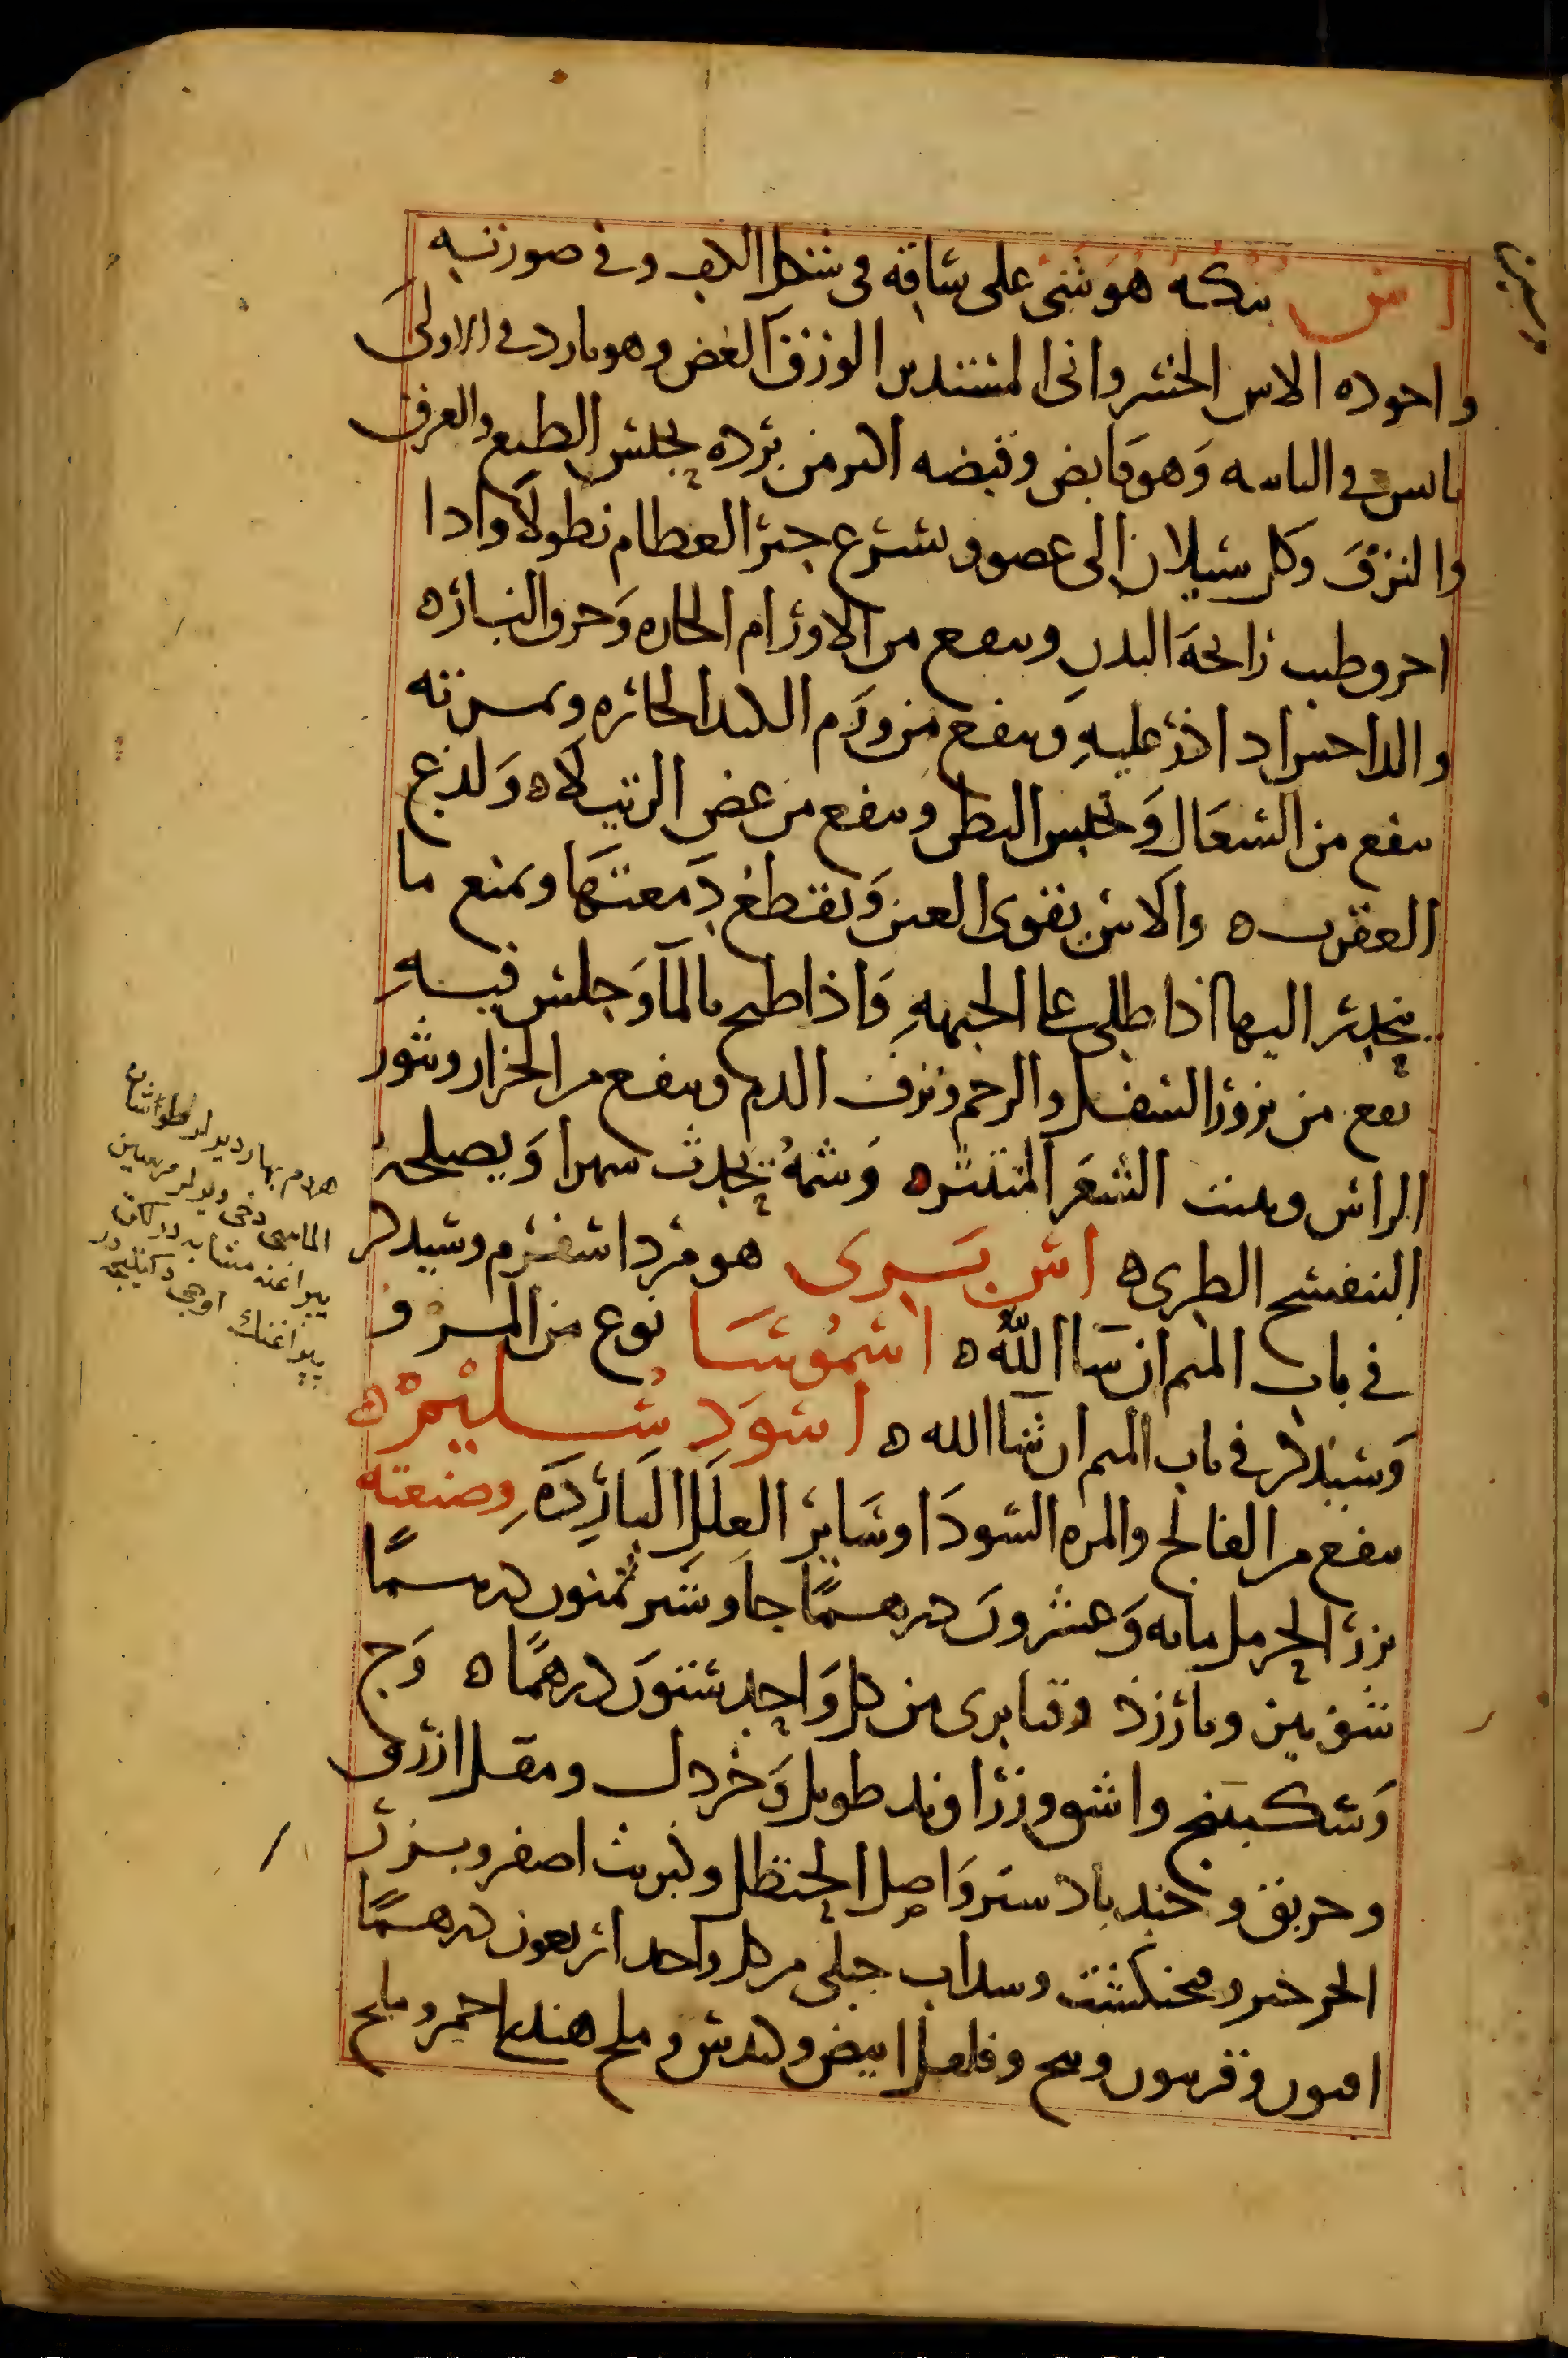 اس بنكه هو شى على ساقه فى شكل الكف وفى صورته
واجوده الاس الخسروانى المستدير الورق الغض وهو بارد فى الاولى
يابس فى الثانيه وهو قابض وقبضه اكثر من برده يحبس الطبع والعرق
والنزف وكل سيلان الى عضو ويسرع جبر العظام نطولا واذا
احرق طيب رائحة البدن وينفع من الاورام الحاره وحرق النار
والداحس اذا ذر عليه وينفع من ورم الكبد الحاره وثمرته
ينفع من السعال وتحبس البطن وينفع من عض الرتيلاه ولدغ
العقرب ه والاس يقوى العين ويقطع دمعتها ويمنع ما
ينحدر اليها اذا طلى على الجبهه واذا طبخ بالما وجلس فيه
نفع من بروز السفل والرحم ونزف الدم وينفع من الحزاز وبثور
الراس وينبت الشعر المتنثره وشمه يحدث سهرا ويصلحه
البنفسج الطرى ه اس برى هو مرداسفرم وسيذكر
فى باب الميم ان شا الله ه اسموسا نوع من المرو
وسيذكر فى باب الميم ان شا الله ه اسود سليم ه
ينفع من الفالج والمره السودا وساير العلل البارده وصنعته
بزر الحرمل مايه وعشرون درهما جاوشير ثمنون درهما
شونيز وبارزد وقنابرى من كل واحد ستون درهما ه وج
وسكبينج واشق وزراوند طويل وخردل ومقل ازرق
وخربق وجندبادستر واصل الحنظل وكبريت اصفر وبزر
الجرجير وفنجنكشت وسداب جبلى من كل واحد اربعون درهما
افيون وفربيون وبنج وفلفل ابيض وكندش وملح هندى احمر وملح
مرسين